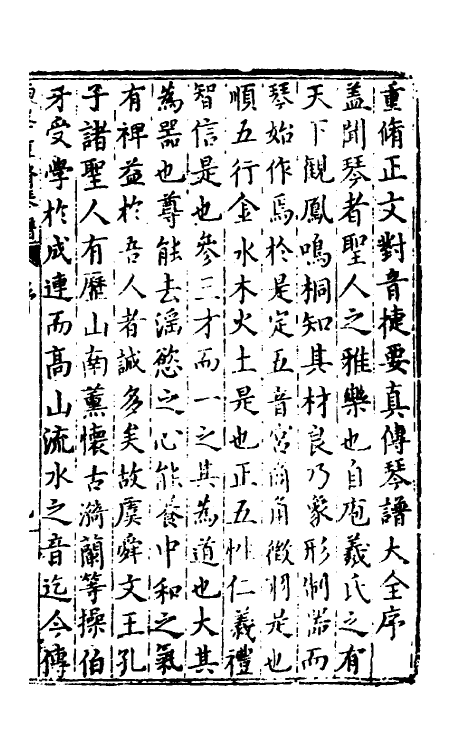 重脩正文對音捷要真傳琴譜大全序
蓋聞琴者聖人之雅樂也自庖羲氏之有
天下觀鳳鳴桐知其材良乃象形制器而
琴始作焉於是定五音宮商角徵羽是也
順五行金水木火土是也正五性仁義禮
智信是也參三才而一之其為道也大其
為器也尊能去滛慾之心能養中和之氣
有裨益於吾人者誠多矣故虞舜文王孔
子諸聖人有歷山南薰懷古漪蘭等操伯
牙受學於成連而髙山流水之音迄今傳